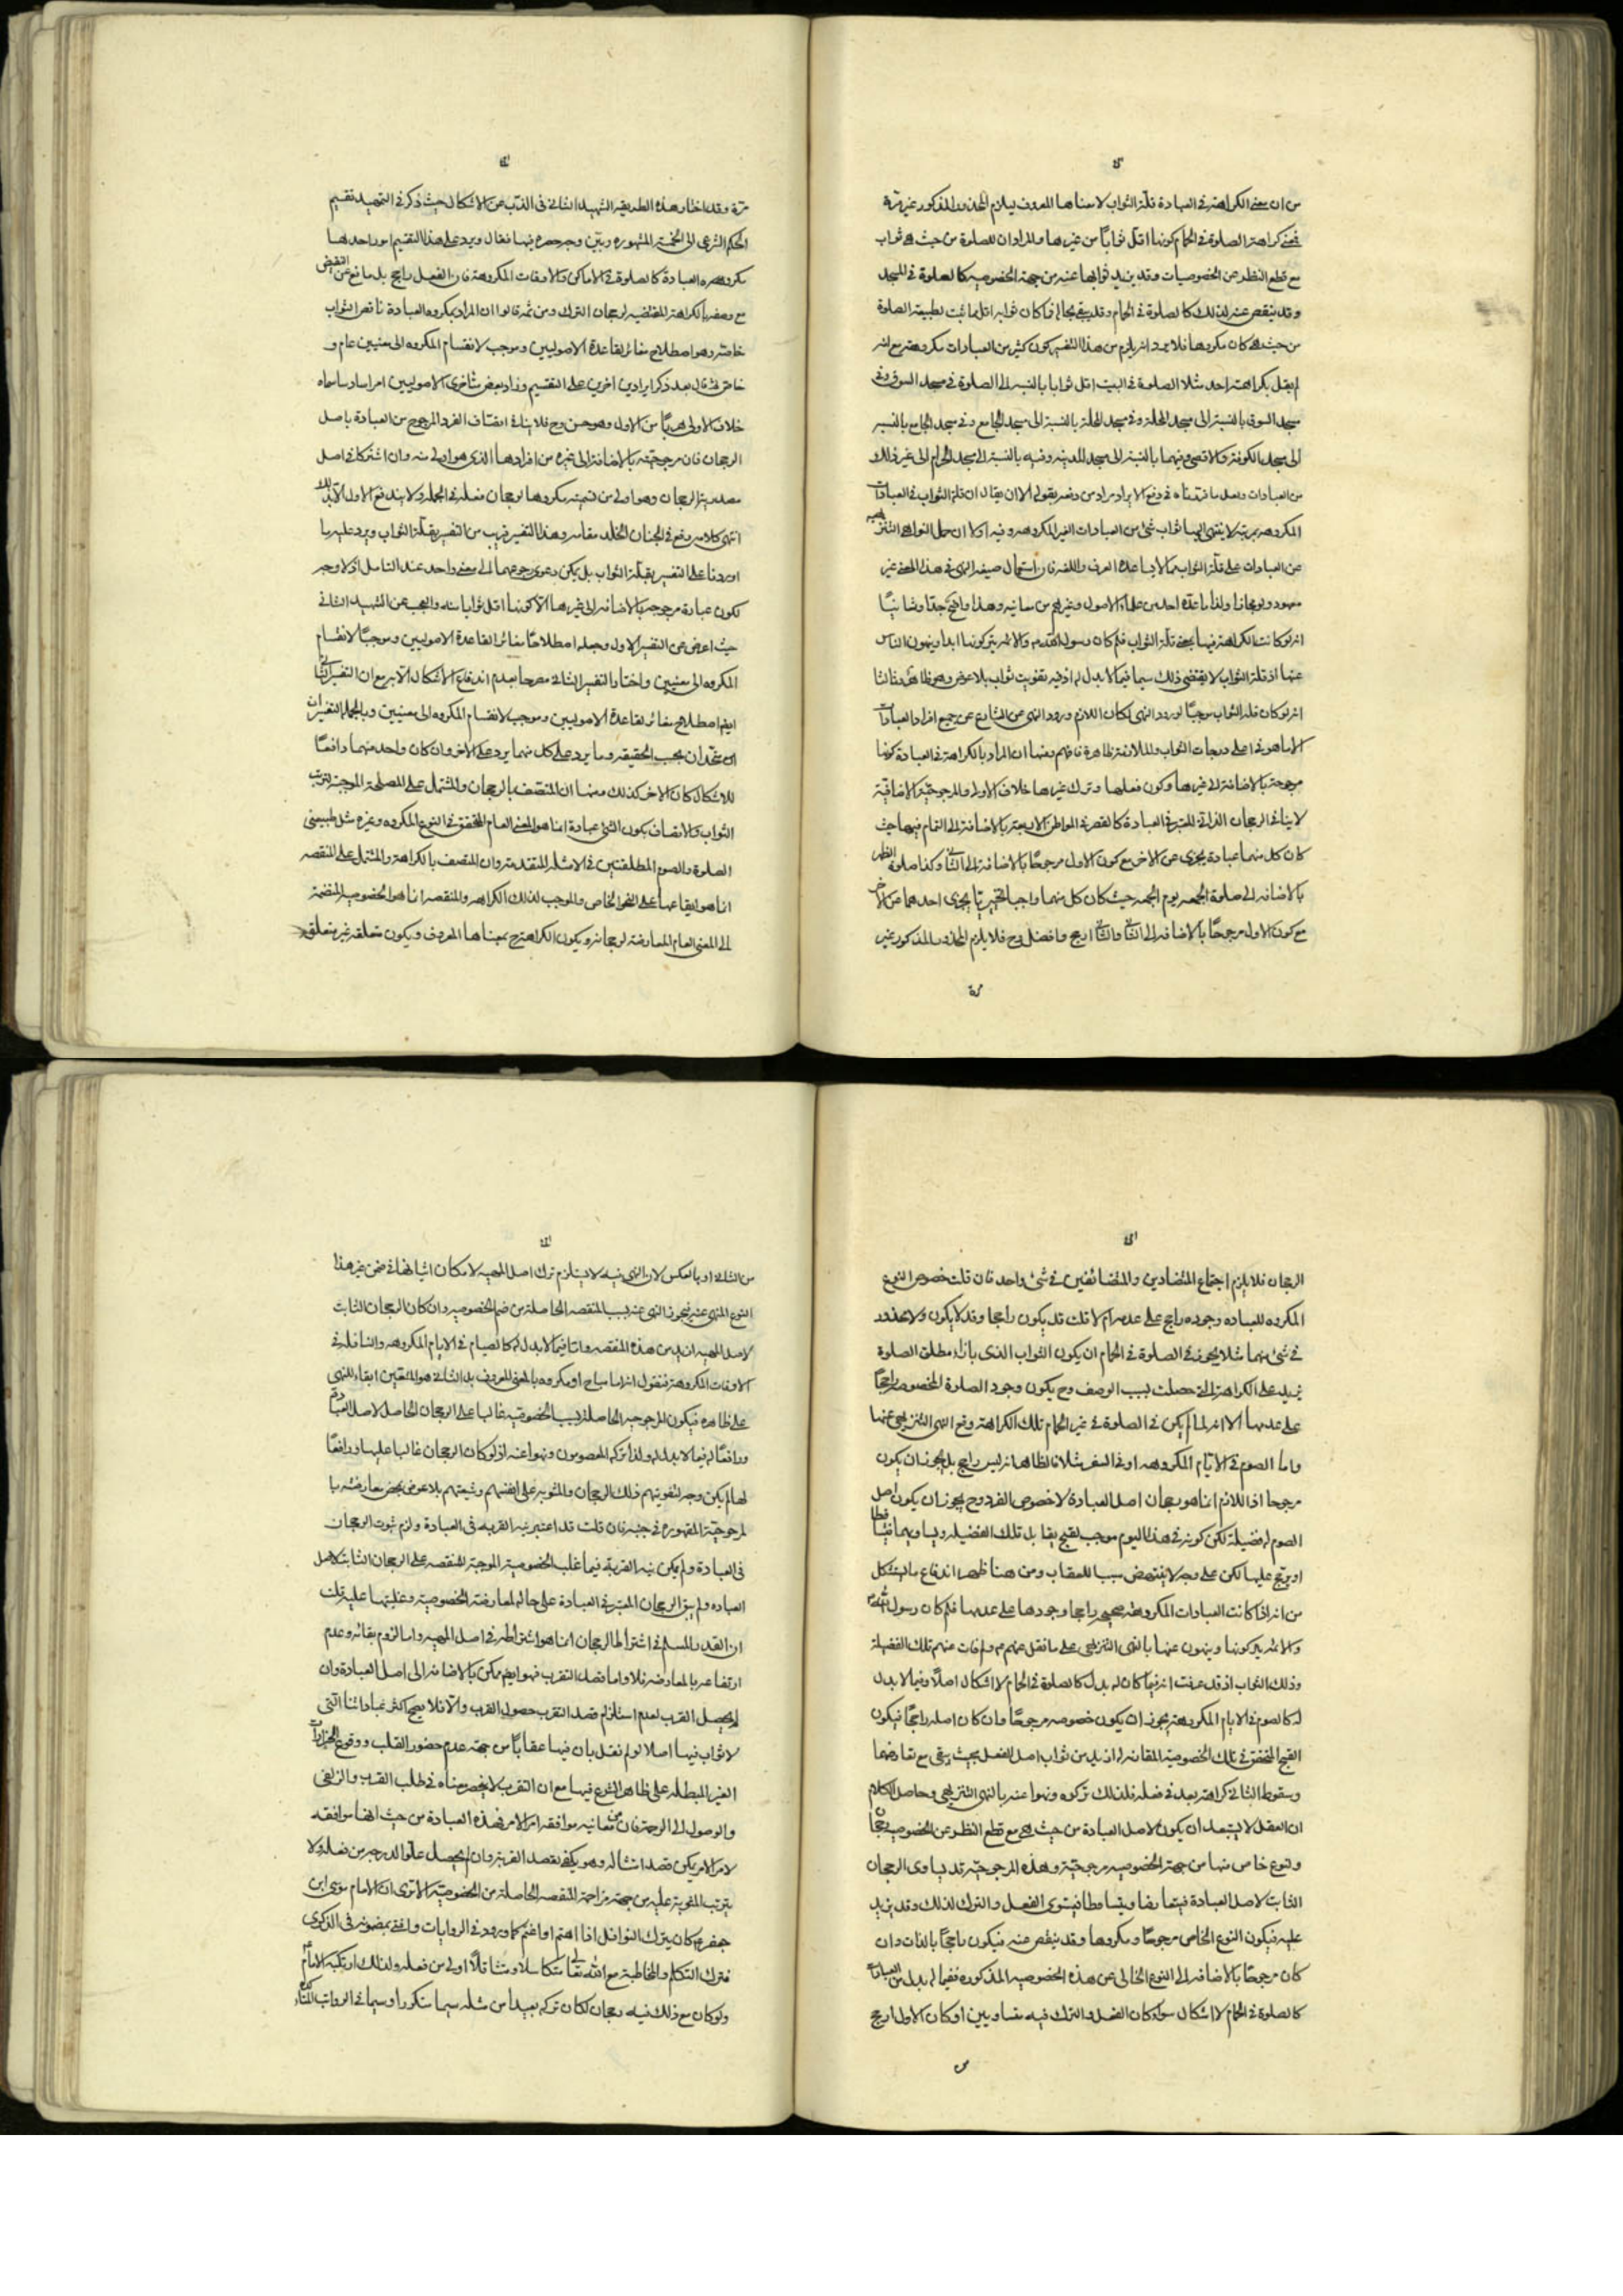 من ان معنى الكراهة في العبادة قلة الثواب لا معناها المعروف فيلزم المحذور المذكور غير مرة
فمعنى كراهة الصلوة في الحمام كونها اقل ثوابا من غيرها والمراد ان للصلوة من حيث هي ثواب
مع قطع النظر عن الخصوصيات وقد يزيد ثوابها عنه من جهة الخصوصيه كالصلوة في المسجد
وقد ينقص عنه لذلك كالصلوة في الحمام وقد يبقى بحاله فما كان ثوابه اقل مما ثبت لطبيعة الصلوة
من حيث هي كان مكروها فلا يرد انه يلزم من هذا التفسير كون كثير من العبادات مكروهة مع انه
لم يقل بكراهته احد مثلا الصلوة في البيت اقل ثوابا بالنسبه الى الصلوة في مسجد السوق وفي
مسجد السوق بالنسبة الى مسجد المحلة وفي مسجد المحلة بالنسبة الى مسجد الجامع وفي مسجد الجامع بالنسبه
الى مسجد الكوفة والاقصى وفيهما بالنسبه الى مسجد المدينه وفيه بالنسبة الى مسجد الحرام الى غير ذلك
من العبادات ولعل ما قدمناه في دفع الايراد مراد من دفعه بقوله الا ان يقال ان قلة الثواب في العبادات
المكروهه بمرتبة لا ينتهي اليها ثواب شئ من العبادات الغير المكروهه وفيه اولا ان حمل النواهي التنزيهيه
عن العبادات على قلة الثواب مما لا يساعده العرف واللغه فان استعمال صيغه النهي في هذا المعنى غير
معهود ولو مجازا ولذا ما عده احد من علماء الاصول وغيرهم من معانيه وهذا واضح جدا وثانيا
انه لو كانت الكراهة فيها بمعنى قلة الثواب فلم كان رسول الله ص والائمه يتركونها ابدا وينهون الناس
عنها اذ قلة الثواب لا يقتضي ذلك سيما فيما لا بدل له اذ فيه تفويت ثواب بلا عوض وهو ظاهر وثالثا
انه لو كان قلة الثواب موجبا لورود النهي لكان اللازم ورود النهي عن الشارع عن جميع افراد العبادات
الا ما هو في اعلى درجات الثواب والملازمة ظاهرة فافهم ومنها ان المراد بالكراهة في العبادة كونها
مرجوحة بالاضافة الى غيرها وكون فعلها وترك غيرها خلاف الاولى والمرجوحية الاضافية
لا ينافي الرجحان الذاتي المعتبر في العبادة كالقصر في المواطن الاربعة بالاضافة الى التمام فيها حيث
كان كل منهما عبادة يجزى عن الاخر مع كون الاول مرجوحا بالاضافة الى الثاني وكذا صلوة الظهر
بالاضافه الى صلوة الجمعه يوم الجمعه حيث كان كل منهما واجبا تخييريا يجزى احدهما عن الاخر
مع كون الاول مرجوحا بالاضافه الى الثاني والثاني ارجح وافضل وح فلا يلزم المحذور المذكور غير
مرة
مرة وقد اختار هذه الطريقه الشهيد الثاني في الذب عن الاشكال حيث ذكر في التمهيد تقسيم
الحكم الشرعي الى الخمسة المشهوره وبين وجه حصره فيها فقال ويرد على هذا التقسيم امور احدها
مكروهه العبادة كالصلوة في الاماكن والاوقات المكروهة فان الفعل راجح بل مانع عن النقيض
مع وصفه بالكراهة المقتضيه لرجحان الترك ومن ثمه قالوا ان المراد بمكروه العبادة ناقص الثواب
خاصة وهو اصطلاح مغائر لقاعدة الاصوليين وموجب لانقسام المكروه الى معنيين عام و
خاص ثم قال بعد ذكر ايرادين اخرين على التقسيم وزاد بعض متأخرى الاصوليين امرا سادسا سماه
خلاف الاولى هربا من الاول وهو حسن وح فلا ينافي اتصاف الفرد المرجوح من العبادة باصل
الرجحان فان مرجوحيته بالاضافة الى غيره من افرادها الذي هو اولى منه وان اشتركا في اصل
مصدرية الرجحان وهو اولى من تسميته مكروها لرجحان فعله في الجملة ولا يندفع الاول الا بذلك
انتهى كلامه رفع في الجنان الخلد مقامه وهذا التفسير قريب من التفسير بقلة الثواب ويرد عليه ما
اوردنا على التفسير بقلة الثواب بل يمكن دعوى رجوعهما الى معنى واحد عند التامل اذ لا وجه
لكون عبادة مرجوحة بالاضافه الى غيرها الا كونها اقل ثوابا منه والعجب عن الشهيد الثاني
حيث اعرض عن التفسير الاول وجعله اصطلاحا مغائر القاعدة الاصوليين وموجبا لانقسام
المكروه الى معنيين واختار التفسير الثاني مصرحا بعدم اندفاع الاشكال الا به مع ان التفسير الثاني
ايضا اصطلاح مغائر لقاعدة الاصوليين وموجب لانقسام المكروه الى معنيين وبالجملة التفسيران
متحدان بحسب الحقيقه وما يرد على كل منهما يرد على الاخر وان كان واحد منهما دافعا
للاشكال كان الاخر كذلك ومنها ان المتصف بالرجحان والمشتمل على المصلحة الموجبة لترتب
الثواب والاتصاف بكون الشئ عبادة انما هو المعنى العام المتحقق في النوع المكروه وغيره مثل طبيعتي
الصلوة والصوم المطلقتين في الامثله المتقدمة وان المتصف بالكراهة والمشتمل على المنقصه
انما هو ايقاعها على النحو الخاص والموجب لذلك الكراهه والمنقصه انما هو الخصوصيه المنضمة
الى المعنى العام المعارضة لرجحانه ويكون الكراهة ح بمعناها المعروف ويكون متعلقه غير متعلق
الرجحان فلا يلزم اجتماع المتضادين والمتضائفين في شئ واحد فان قلت خصوص النوع
المكروه للعباده وجوده راجح على عدمه ام لا قلت قد يكون راجحا وقد لا يكون ولا محذور
في شئ منهما مثلا يجوز في الصلوة في الحمام ان يكون الثواب الذي بازاء مطلق الصلوة
يزيد على الكراهة التي حصلت بسبب الوصف وح يكون وجود الصلوة المخصوصة راجحا
على عدمها الا انه لما لم يكن في الصلوة في غير الحمام تلك الكراهة وقع النهي التنزيهي عنها
واما الصوم في الايام المكروهه او في السفر مثلا فالظاهر انه ليس راجح بل يجوز ان يكون
مرجوحا اذ اللازم انما هو رجحان اصل العبادة لا خصوص الفرد وح يجوز ان يكون اصل
الصوم له فضيلة لكن كونه في هذا اليوم موجب لقبح يقابل تلك الفضيله ويساويها فيتساقطا
او يرجح عليها لكن على وجه لا ينتهض سببا للعقاب ومن هنا ظهر اندفاع ما يستشكل
من انه اذا كانت العبادات المكروهة صحيحه راجحا وجودها على عدمها فلم كان رسول الله ص
والائمه يتركونها وينهون عنها بالنهي التنزيهي على ما نقل عنهم ع ولم فات عنهم تلك الفضيلة
وذلك الثواب اذ قد عرفت انه فيما كان له بدل كالصلوة في الحمام لا اشكال اصلا وفيما لا بدل
له كالصوم في الايام المكروهة يجوز ان يكون خصوصه مرجوحا وان كان اصله راجحا فيكون
القبح المتحقق في تلك الخصوصية المقارنة له ازيد من ثواب اصل الفعل بحيث يبقى مع تعارضهما
وسقوط الثاني كراهة بعد في فعله فلذلك تركوه ونهوا عنه بالنهي التنزيهي وحاصل الكلام
ان العقل لا يستبعد ان يكون لاصل العبادة من حيث هي مع قطع النظر عن الخصوصية رجحان
ولنوع خاص منها من جهة الخصوصيه مرجوحية وهذه المرجوحية قد يساوي الرجحان
الثابت لاصل العبادة فيتعارضا ويتساقطا فيستوى الفعل والترك لذلك وقد يزيد
عليه فيكون النوع الخاص مرجوحا ومكروها وقد ينقص عنه فيكون راجحا بالذات وان
كان مرجوحا بالاضافه الى النوع الخالى عن هذه الخصوصيه المذكوره ففيما له بدل من العبادات
كالصلوة في الحمام لا اشكال سواء كان الفعل والترك فيه متساويين او كان الاول ارجح
من
من الثاني او بالعكس لان النهي فيه لا يستلزم ترك اصل المهيه لامكان اتيانها في ضمن غير هذا
النوع المنهي عنه فيجوز النهي عنه لسبب المنقصه الحاصلة من ضم الخصوصيه وان كان الرجحان الثابت
لاصل المهيه ازيد من هذه المنقصه واما فيما لا بدل له كالصيام في الايام المكروهه والنافلة في
الاوقات المكروهة فنقول انه اما مباح او مكروه بالمعنى المعروف بل الثاني هو المتعين ابقاء للنهي
على ظاهره فيكون المرجوحيه الحاصلة بسبب الخصوصيه غالبا على الرجحان الحاصل لاصل العبادة
ورافعا له فيما لا بدل له ولذا تركه المعصومون ونهوا عنه اذ لو كان الرجحان غالبا عليها ورافعا
لها لم يكن وجه لتفويتهم ذلك الرجحان والمثوبه على انفسهم وشيعتهم بلا عوض بمحض معارضته بالـ
لمرجوحية المقهوره في جنبه فان قلت قد اعتبر نيه القربه في العبادة ولزم ثبوت الرجحان
في العبادة ولم يكن نيه القربة فيما غلب الخصوصية الموجبة للمنقصه على الرجحان الثابت لاصل
العباده ولم يبق الرجحان المعتبر في العبادة على حاله لمعارضة الخصوصية وغلبتها عليه قلت
ان القدر المسلم في اشتراط الرجحان انما هو اشتراطه في اصل المهيه واما لزوم بقائه وعدم
ارتفاعه بالمعارضه فلا واما قصد التقرب فهو ايضا ممكن بالاضافه الى اصل العبادة وان
لم يحصل القرب لعدم استلزام قصد التقرب حصول القرب والا فلا يصح اكثر عباداتنا التي
لا ثواب فيها اصلا لو لم نقل بان فيها عقابا من جهة عدم حضور القلب ووقوع
الغير المبطله على ظاهر الشرع فيها مع ان التقرب لا ينحصر معناه في طلب القرب والزلفى
والوصول الى الرحمة فان من معانيه موافقه امر الامر فهذه العبادة من حيث انها موافقه
لامر الامر يكون قصد امتثاله وهو يكفي لقصد القربة وان لم يحصل علو الدرجه من فعله ولا
يترتب المثوبة عليه من جهة مزاحمة المنقصه الحاصلة من الخصوصيه الا ترى ان الامام موسى ابن
جعفر ع كان يترك النوافل اذا اهتم او اغتم كما ورد في الروايات وافتى بمضمونه في الذكرى
فترك التكلم والمخاطبة مع الله تعالى متكاسلا ومتثاقلا اولى من فعله ولذلك ارتكبه الامام ع
ولو كان مع ذلك فيه رجحان لكان تركه بعيدا من مثله سيما متكررا وسيما في الرواتب